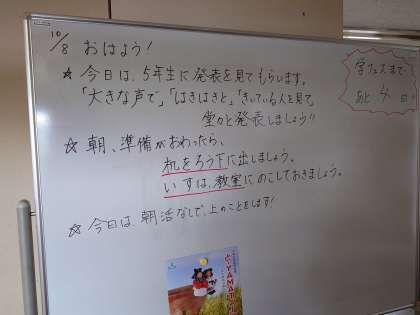 10/8 おはよう!
☆ 今日は、5年生に発表を見てもらします。
「大きな声で」「はきはきと」「きいている人を見て」
堂々と発表しましょう!!
☆ 朝、準備がおわったら、
机をろう下に出しましょう。
いすは、教室にのこしておきましょう。
☆ 今日は、朝活なしで、上のことをします!
学フェスまで
あと4日!